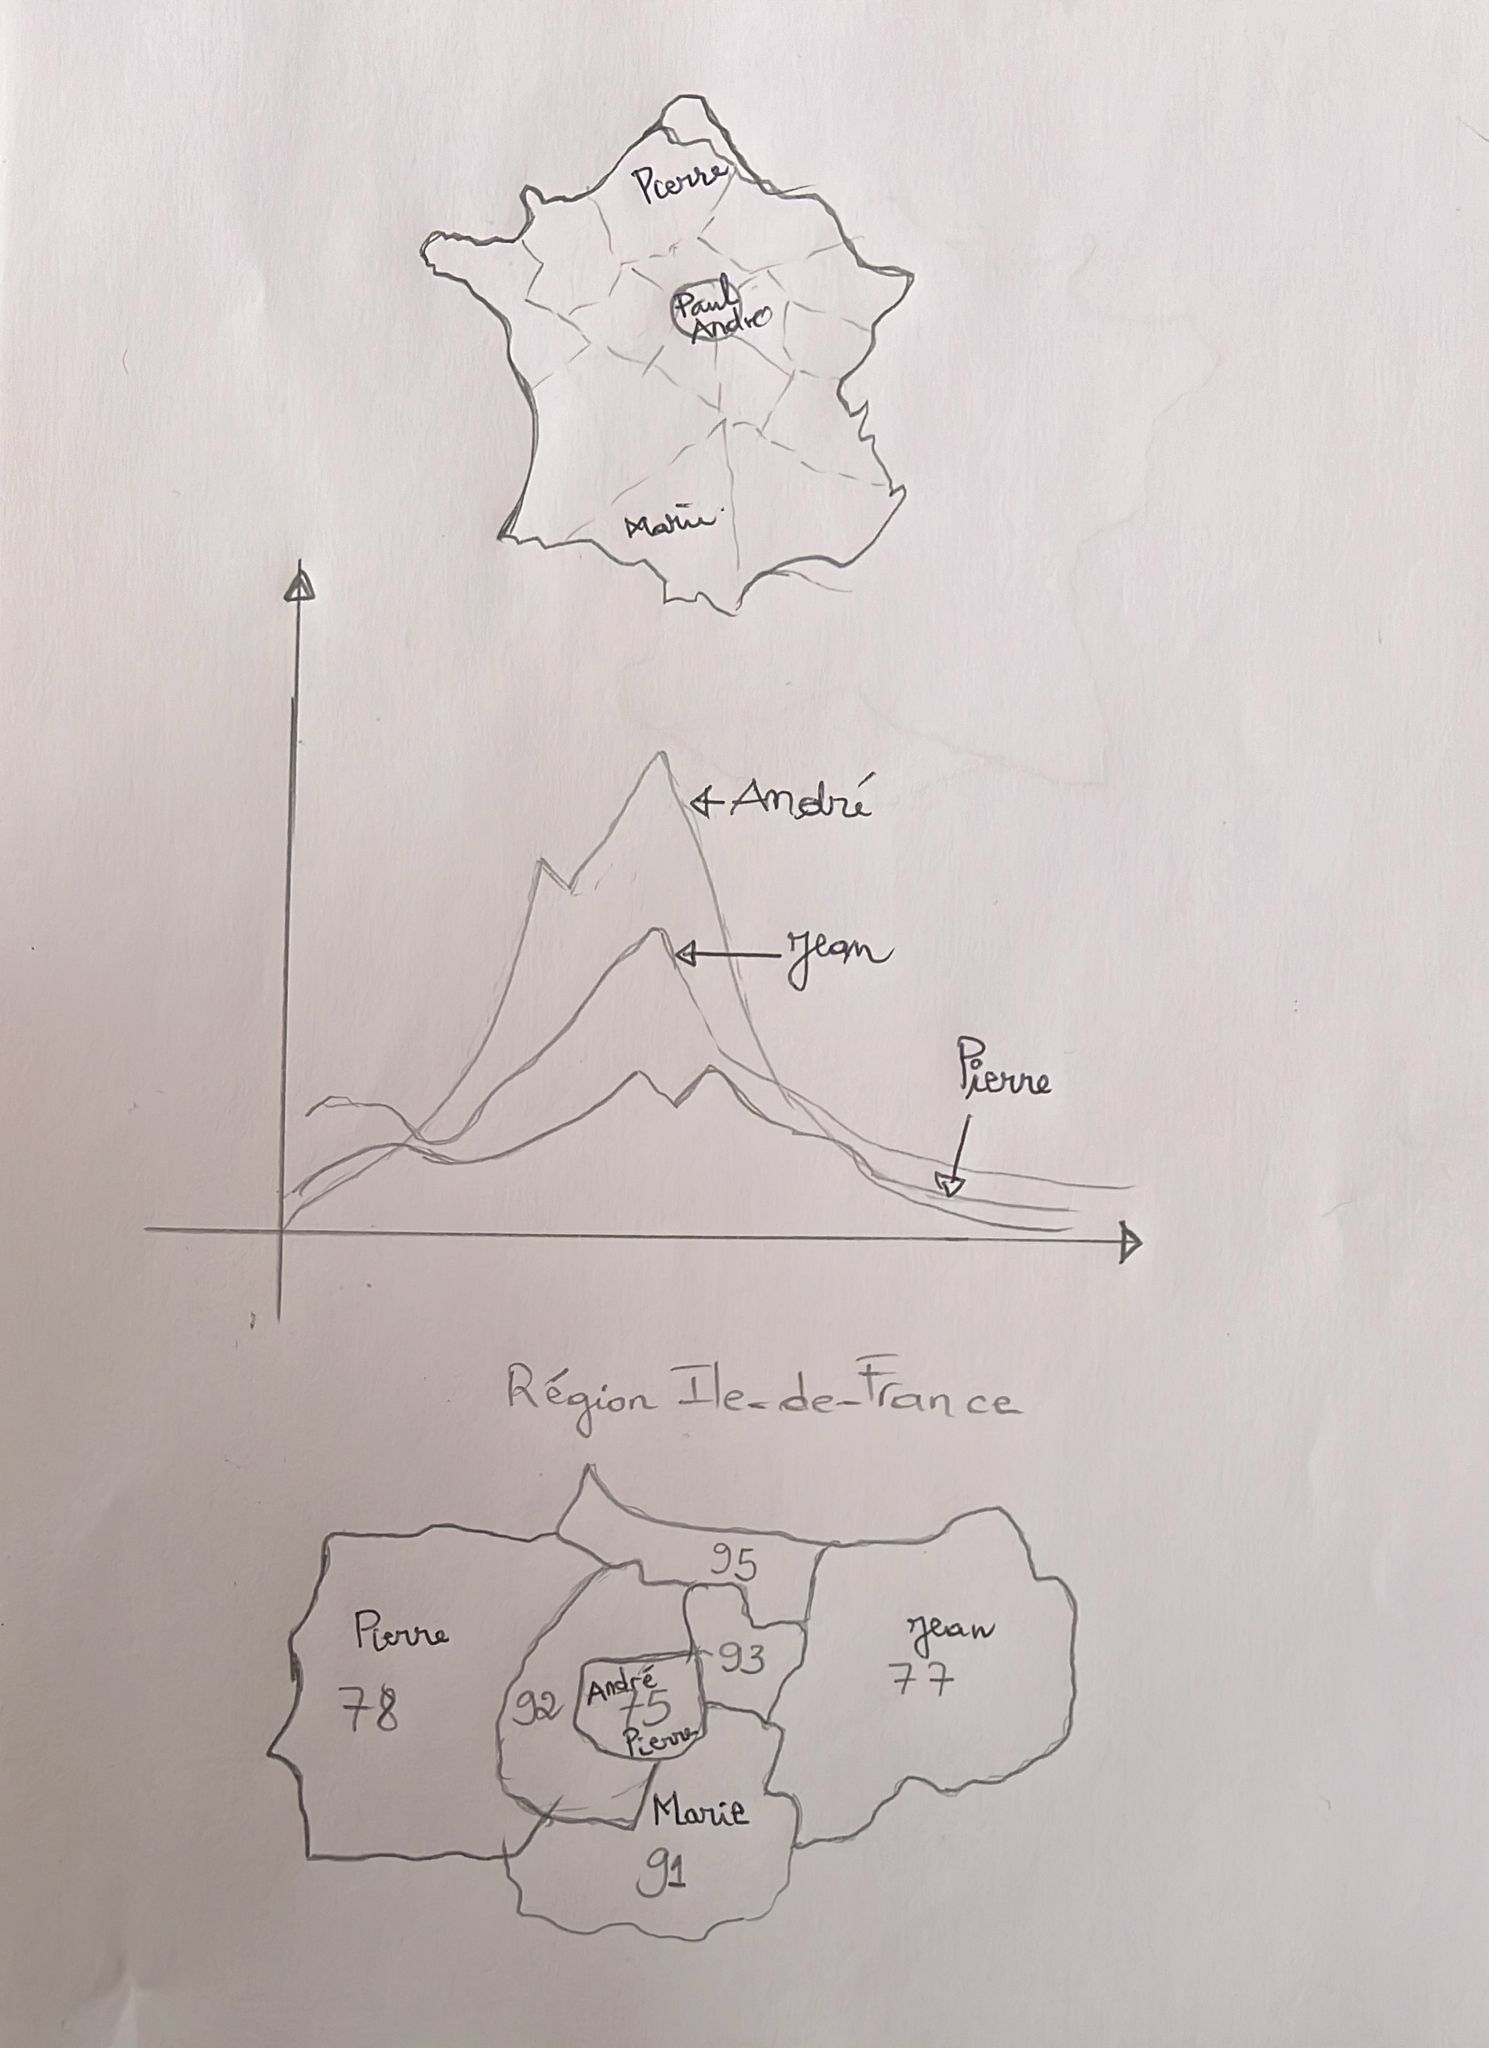 Pierre
Paul
André
Marie
André
Jean
Pierre
Région Ile-de-France
95
Pierre
Jean
93
77
78
92
André
75
Pierre
Marie
91